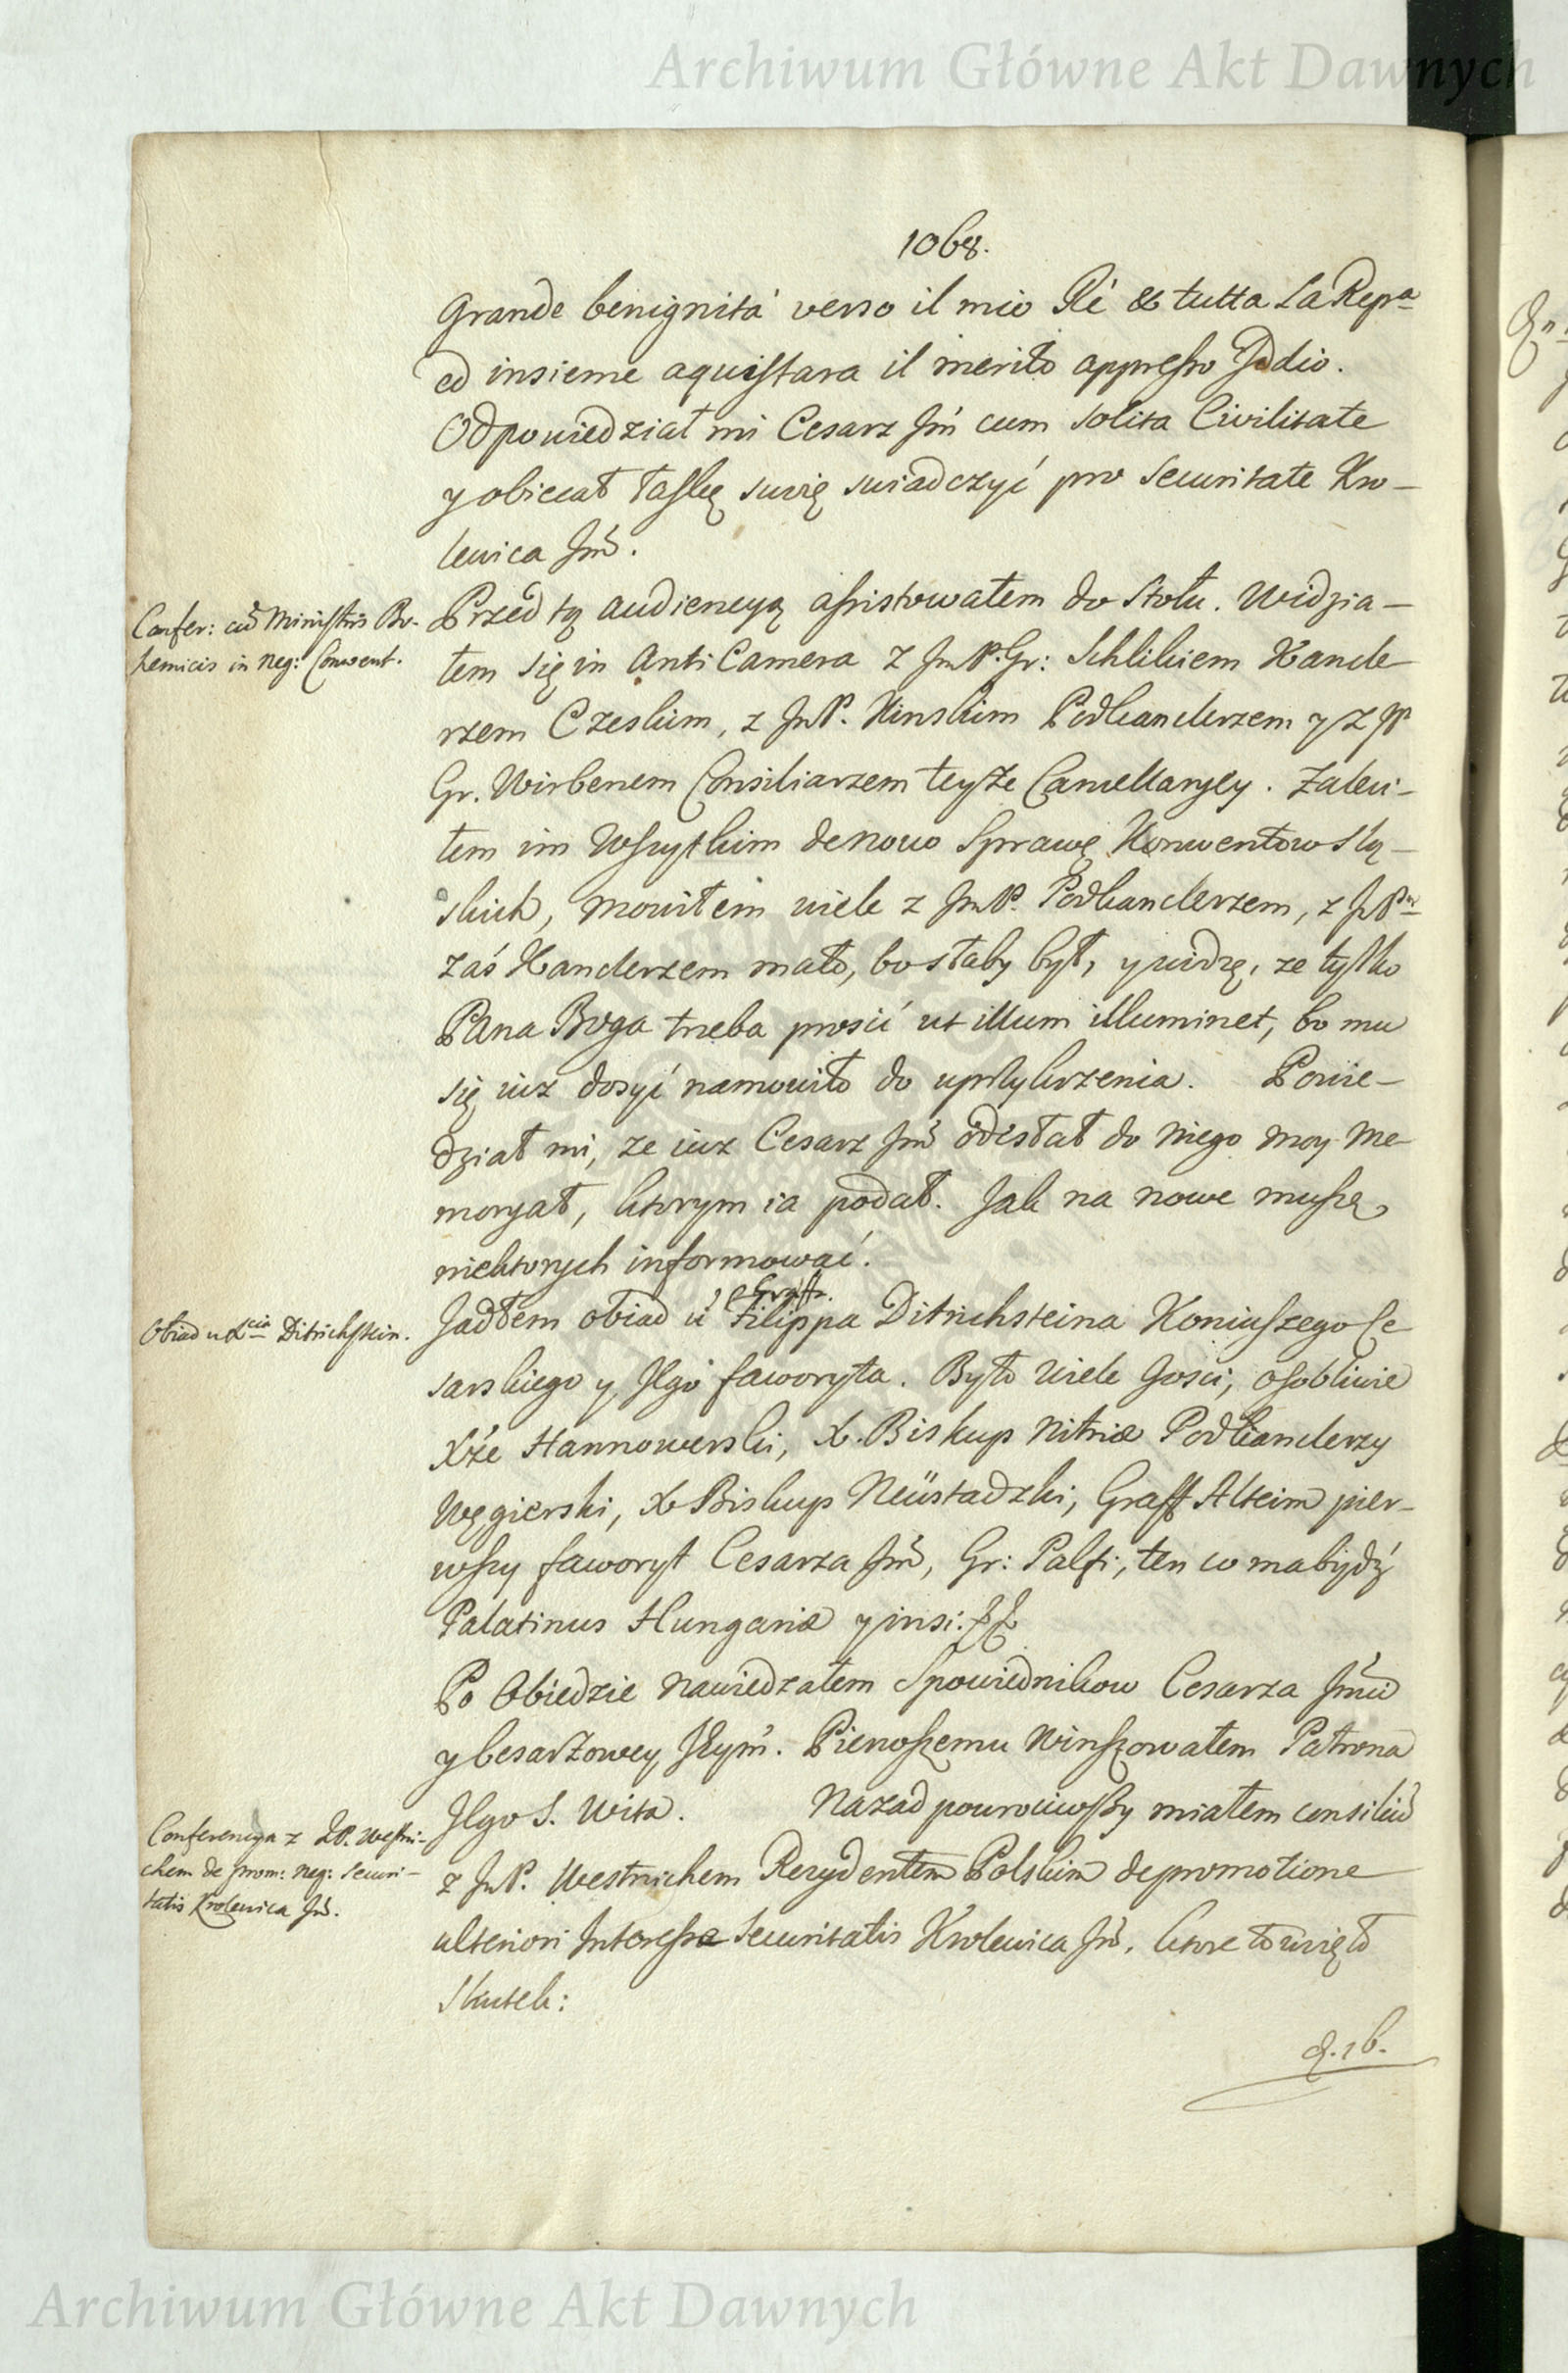 Archiwum Główne Akt Dawnych
1068.
grande benignitá verso il mio Ré & tutta la Repca
ed insieme aquistara il merito appresso Iddio.
Odpowiedział mi Cesarz Jm cum solita Civilitate
y obiecał łaskę swoię swiadczyć pro securitate Kro-
lewica Jmci.
Confer: cum Ministris Bo-
hemicis in neg: Convent.
Przed tą audiencyą assistowałem do stołu. Widzia-
łem się in Anti Camera z JmP. Gr: Schlikiem Kancle-
rzem Czeskim, z JmP. Kinskim Podkanclerzem y z JP
Gr. Wirbenem Consiliarzem teyże Cancellaryey. Zaleci-
łem im wszystkim denovo sprawę Konwentow Slą-
skich, mowiłem wiele z JmP. Podkanclerzem, z JmPem
zaś Kanclerzem mało, bo słaby był, y widzę, ze tylko
Pana Boga trzeba prosić ut illum illuminet, bo mu
się iuz dosyć namowiło do uprzykrzenia. Powie-
dział mi, ze iuz Cesarz Jmć odesłał do niego moy Me-
moryał, ktorym ia podał. Jak na nowe muszę
niektorych informować.
Obiad u Xcia Ditrichstein.
Jadłem obiad u Graffa Filippa Ditrichsteina Koniuszego Ce-
sarskiego y Jego faworyta. Było wiele Gosci, osobliwie
Xże Hannowerski, X. Biskup Nitriæ Podkanclerzy
Węgierski, X Biskup Neüstadzki, Graff Alteim pier-
wszy faworyt Cesarza Jmć, Gr: Palfi, ten co ma bydź
Palatinus Hungariæ y insi.
Po Obiedzie nawiedzałem Spowiednikow Cesarza Jmci
y Cesarzowey Jeym. Pierwszemu winszowałem Patrona
Jego S. Wita. Nazad powrociwszy miałem consilium
Conferencya z JP. Westri-
chem de prom: neg: Securi-
tatis Krolewica Jmć.
z JmP. Westrichem Rezydentem Polskim de promotione
ulteriori Interesse Securitatis Krolewica Jmć, ktore to wzięło
Skutek:
d. 16.
Archiwum Główne Akt Dawnych